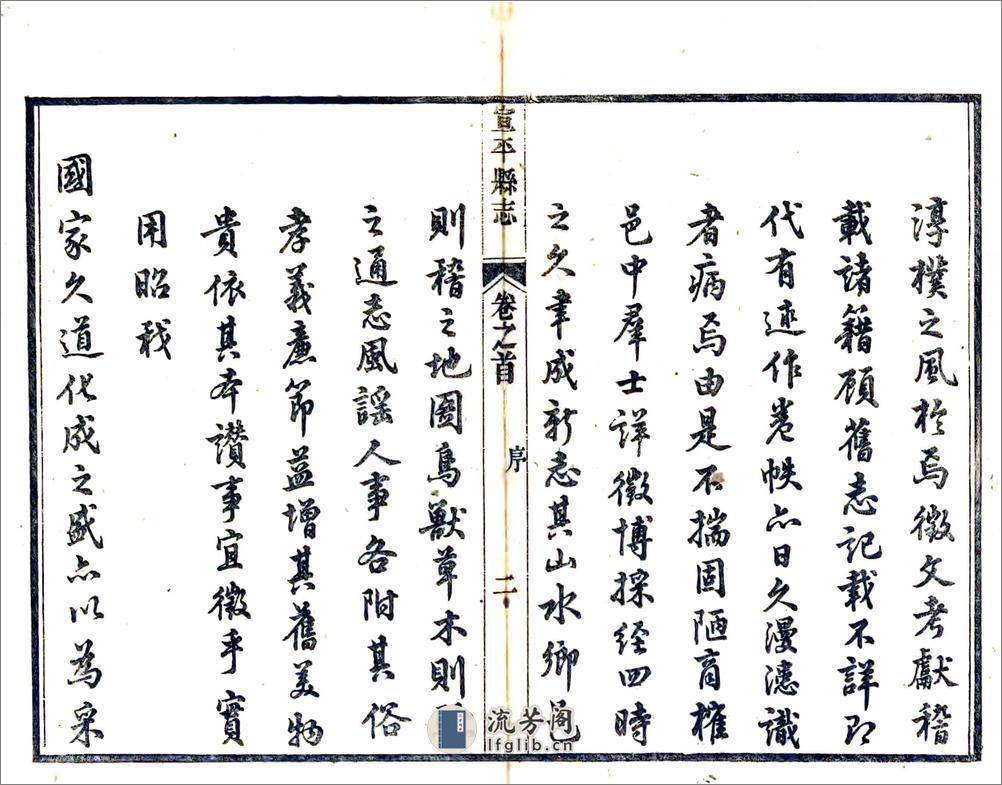 淳樸之風於焉徵文考獻稽
載諸籍顧舊志記載不詳即
代有述作卷帙亦日久漫漶識
者病焉由是不揣固陋商榷
邑中羣士詳徵博採經四時
之久聿成新志其山水鄉邑
宣平縣志
卷之首
序
二
則稽之地圖鳥獸草木則
之通志風謠人事各附其俗
孝義廉節益增其舊美物
貴依其本讚事宜徵乎實
用昭我
國家久道化成之盛亦以為采
流芳阁
lfglib.cn